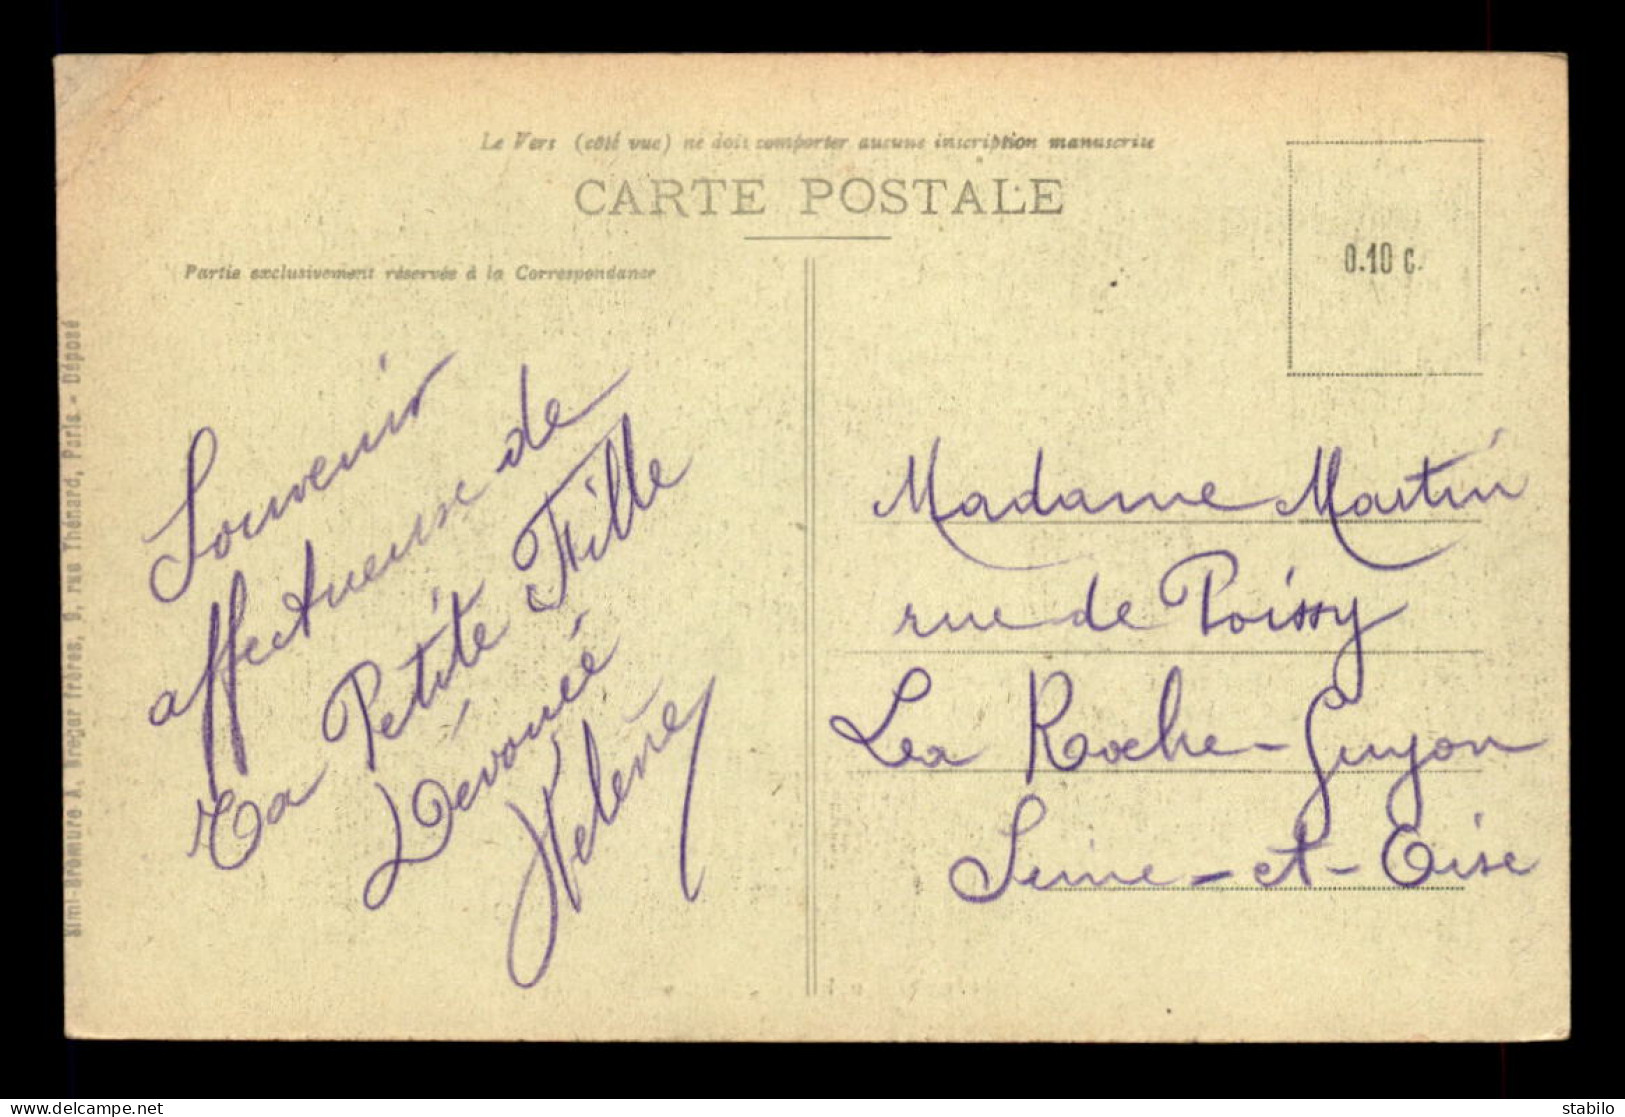 Le Vers (côté vue) ne doit comporter aucune inscription manuscrite
CARTE POSTALE
0.10 c.
Partie exclusivement réservée à la Correspondance
Simi-Bromure A. Breger frères, 9, rue Thénard, Paris - Déposé
Souvenir
affectueuse de
ta Petite Fille
Dévouée
Helene
Madame Martin
rue de Poissy
La Roche-Guyon
Seine-et-Oise
stabilo